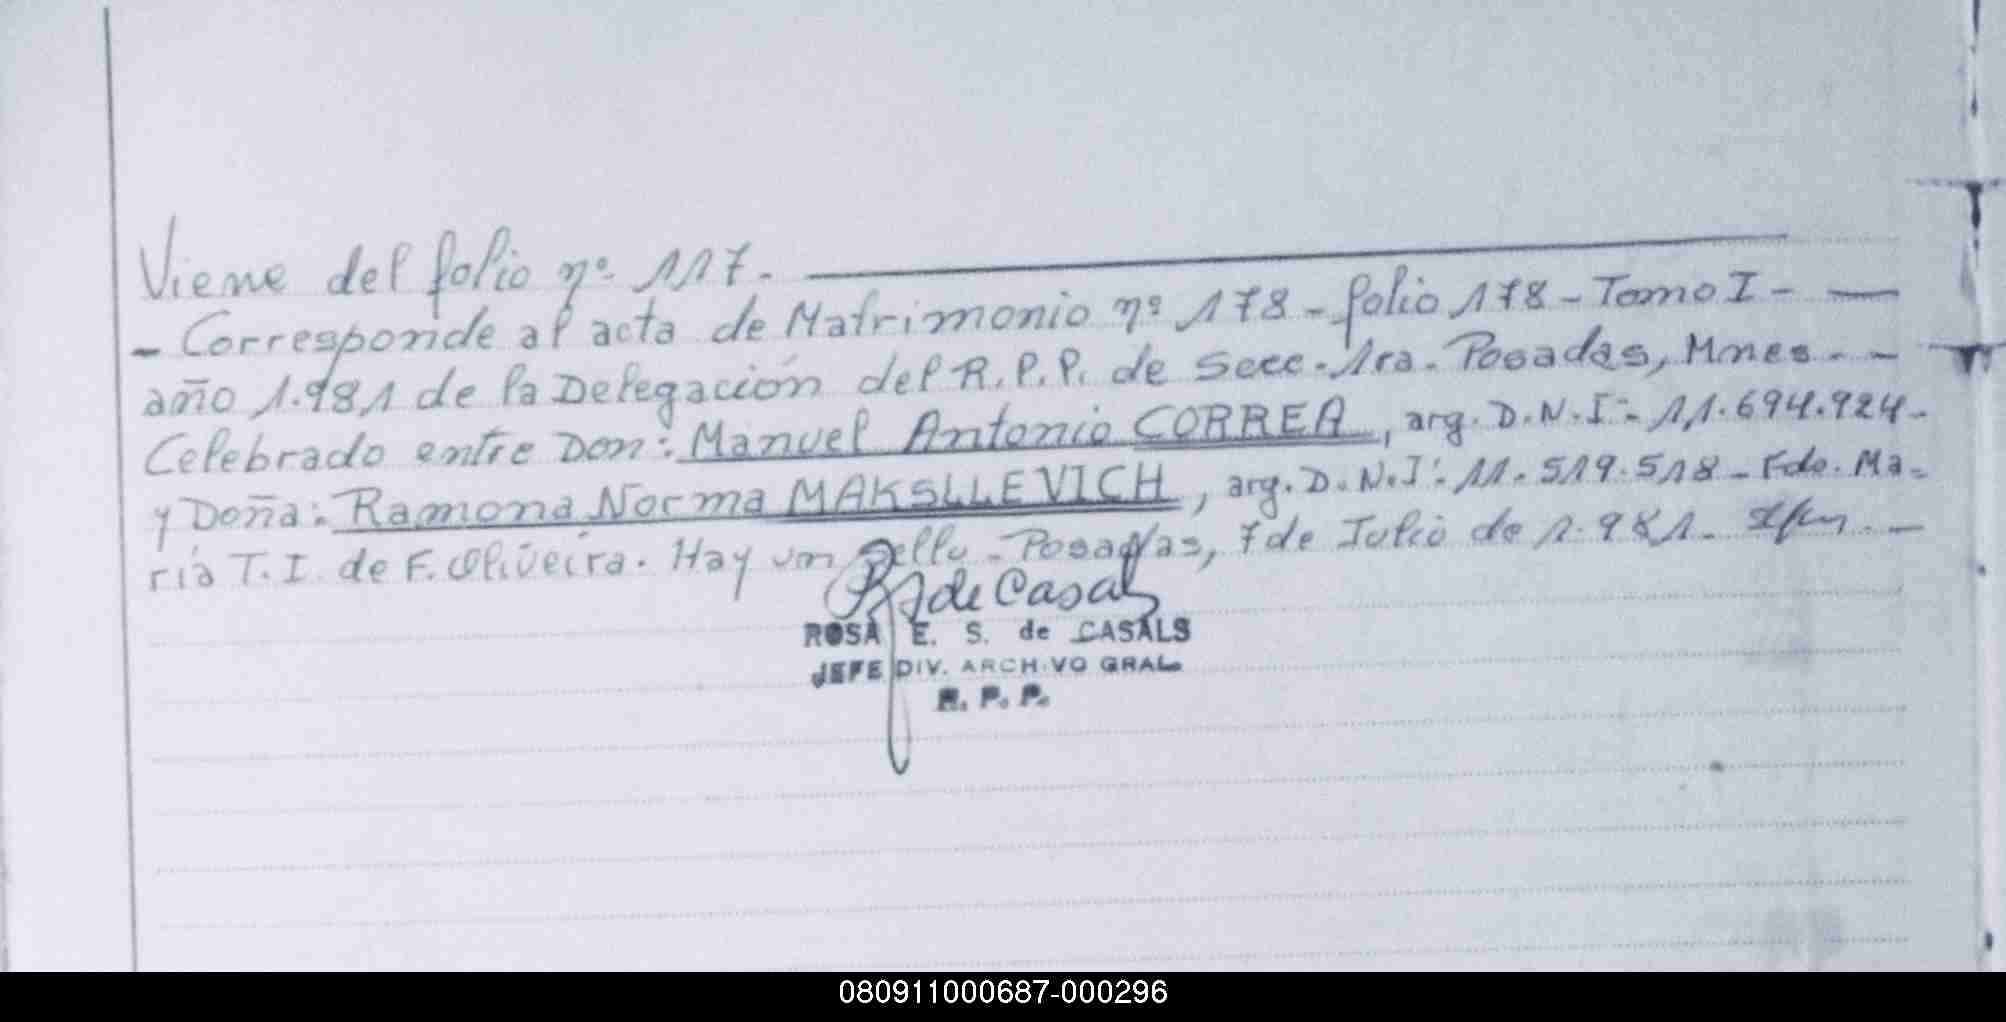 Viene del folio nº 117.
- Corresponde al acta de Matrimonio nº 178 - folio 178 - Tomo I -
año 1.981 de la Delegación del R.P.P. de Secc. 1ra. Posadas, Mnes. -
Celebrado entre Don: Manuel Antonio CORREA, arg. D.N.I: 11.694.924-
y Doña: Ramona Norma MAKSLLEVICH, arg. D.N.I: 11.519.518 - Fdo. Ma-
ría T.I. de F. Oliveira. Hay un Sello - Posadas, 7 de Julio de 1.981.
de Casals
ROSA E. S. de CASALS
JEFE DIV. ARCHIVO GRAL.
R. P. P.
080911000687-000296